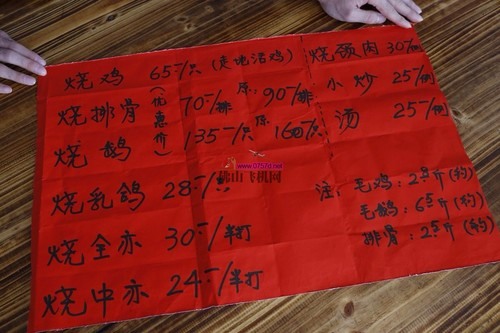 烧鸡 65元/只 (走地活鸡)
烧排骨 70元/排 原:90元/排
烧鹅 135元/只 原 160元/只
(优惠价)
烧乳鸽 28元/只
烧全亦 30元/半打
烧中亦 24元/半打
烧颈肉 30元/例
小炒 25元/例
汤 25元/例
注: 毛鸡:2.8斤(约)
毛鹅:6.5斤(约)
排骨:2.5斤(约)
www.0757d.net
佛山飞机网